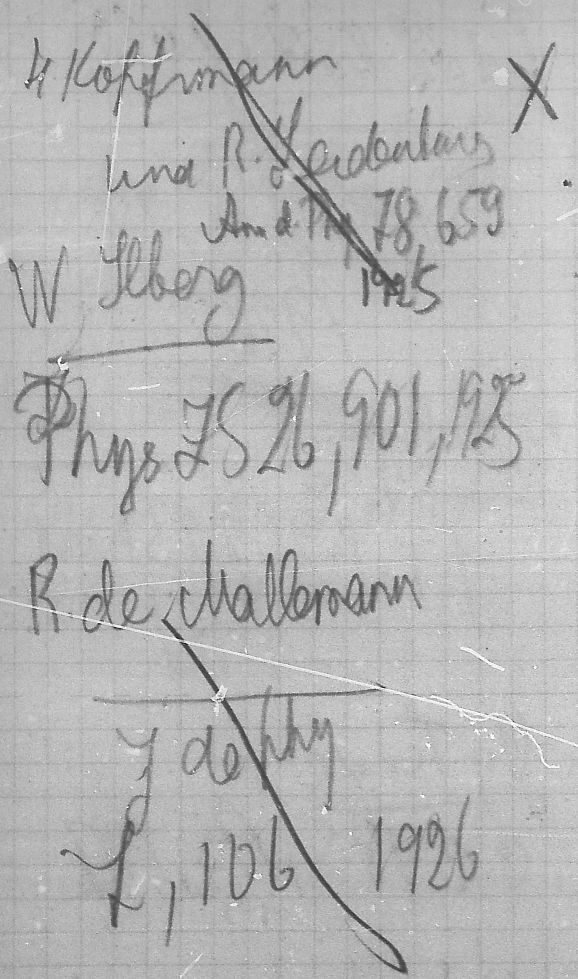 H Kopfermann
und R. Ladenburg
Ann d. Phy 78, 659
1925
W Ilberg
Phys ZS 26, 901, 1925
R de Mallemann
J de phy
7, 106 1926